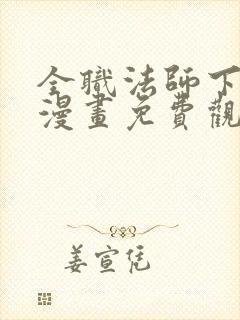 全職法師下
漫畫免費觀
姜宣恁